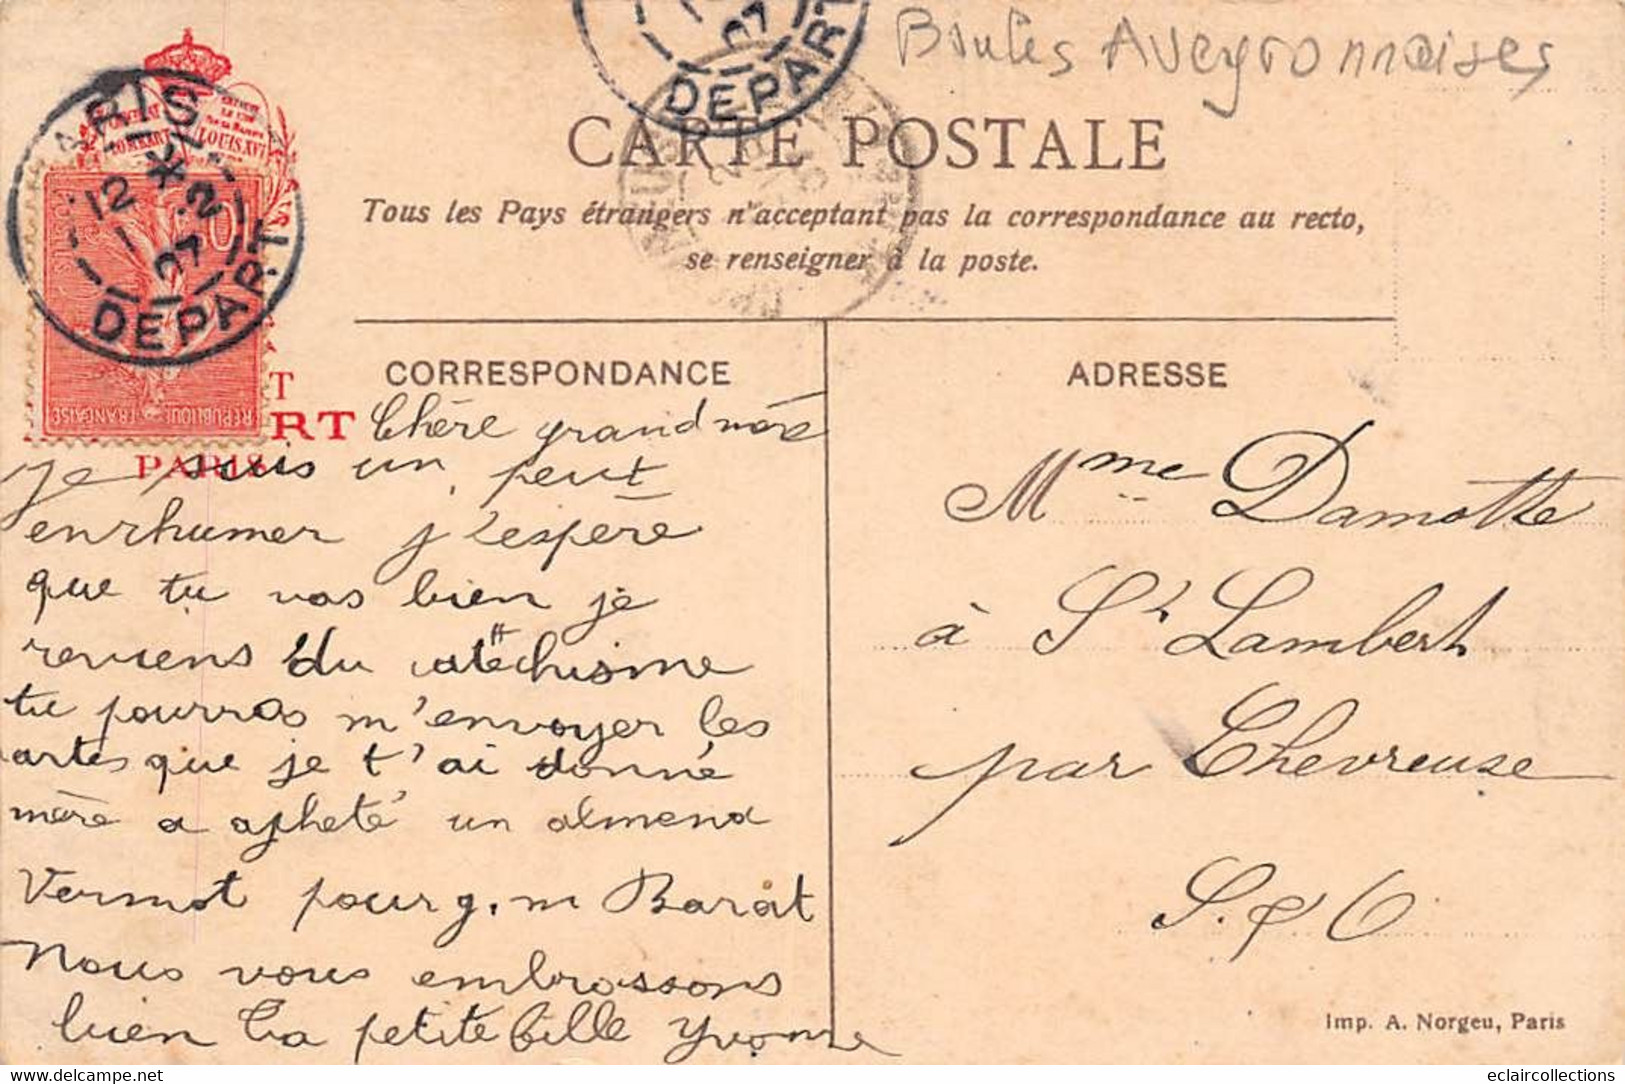 Boules Aveyronnaises
CARTE POSTALE
Tous les Pays étrangers n'acceptent pas la correspondance au recto,
se renseigner à la poste.
PARIS XI
12
1 - 2
07
DEPART
07
DEPART
LOUIS XVI
POSTES
10
REPUBLIQUE FRANÇAISE
T
RT
PARIS
CORRESPONDANCE
ADRESSE
Chère grand mère
je suis un peut
enrhumer j'espère
que tu vas bien je
reviens du catéchisme
tu pourras m'envoyer les
artes que je t'ai donné
mère a apheté un almena
Vermot pour g. m Barat
Nous vous embrassons
bien ta petite fille Yvonne
Mme Damotte
à St Lambert
par Chevreuse
S. & O
Imp. A. Norgeu, Paris
https://www.delcampe.net
eclaircollections